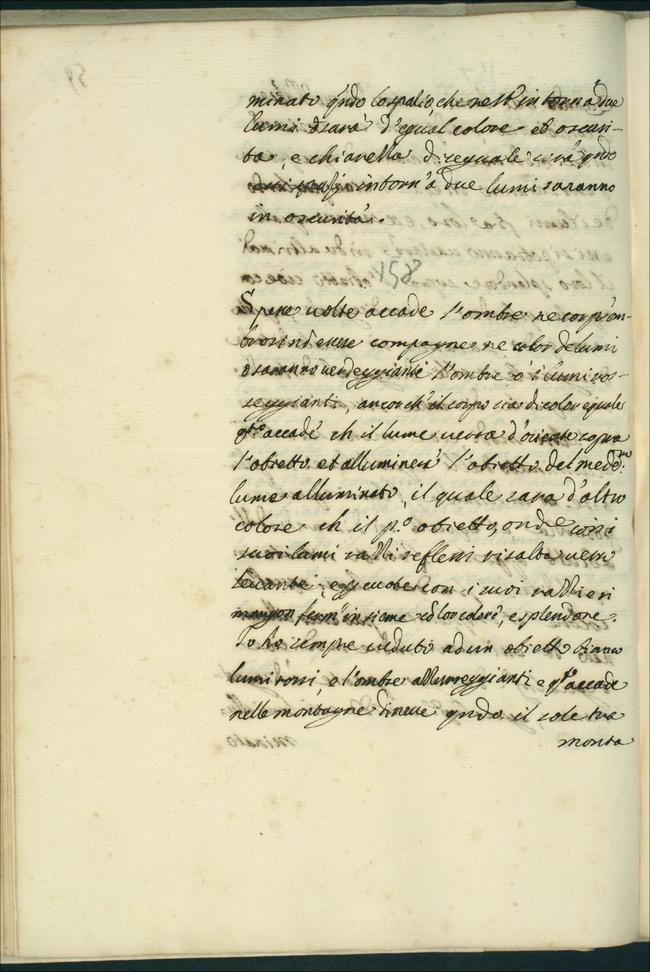 minato qñdo lo spatio, che resti intorn'a due
lumi sarà d'equal colore et oscuri-
ta, e chiarezza di seguale sirà qñdo
intorn'a due lumi saranno
in oscurità.
158
Spesse volte accade l'ombre ne corpi om-
brosi nō essere compagne ne color de lumi
o saranno verdeggianti l'ombre o i lumi ros-
seggianti, ancor ch'il corpo sia di color equale
qsto accadè ch il lume verrà d'oriente sopra
l'obietto, et alluminerà l'obietto del medmo
lume alluminato, il quale sarà d'altro
colore ch il po obietto, onde con i
suoi razzi reflessi risalta verso
levante, e percuote con i suoi razzi e si
insieme colori, e splendore.
Io ho sempre veduto ad un obietto bianco
lumi rossi, e l'ombre azzurreggianti e qsto accade
nelle montagne di neve qñdo il sole tra
monta